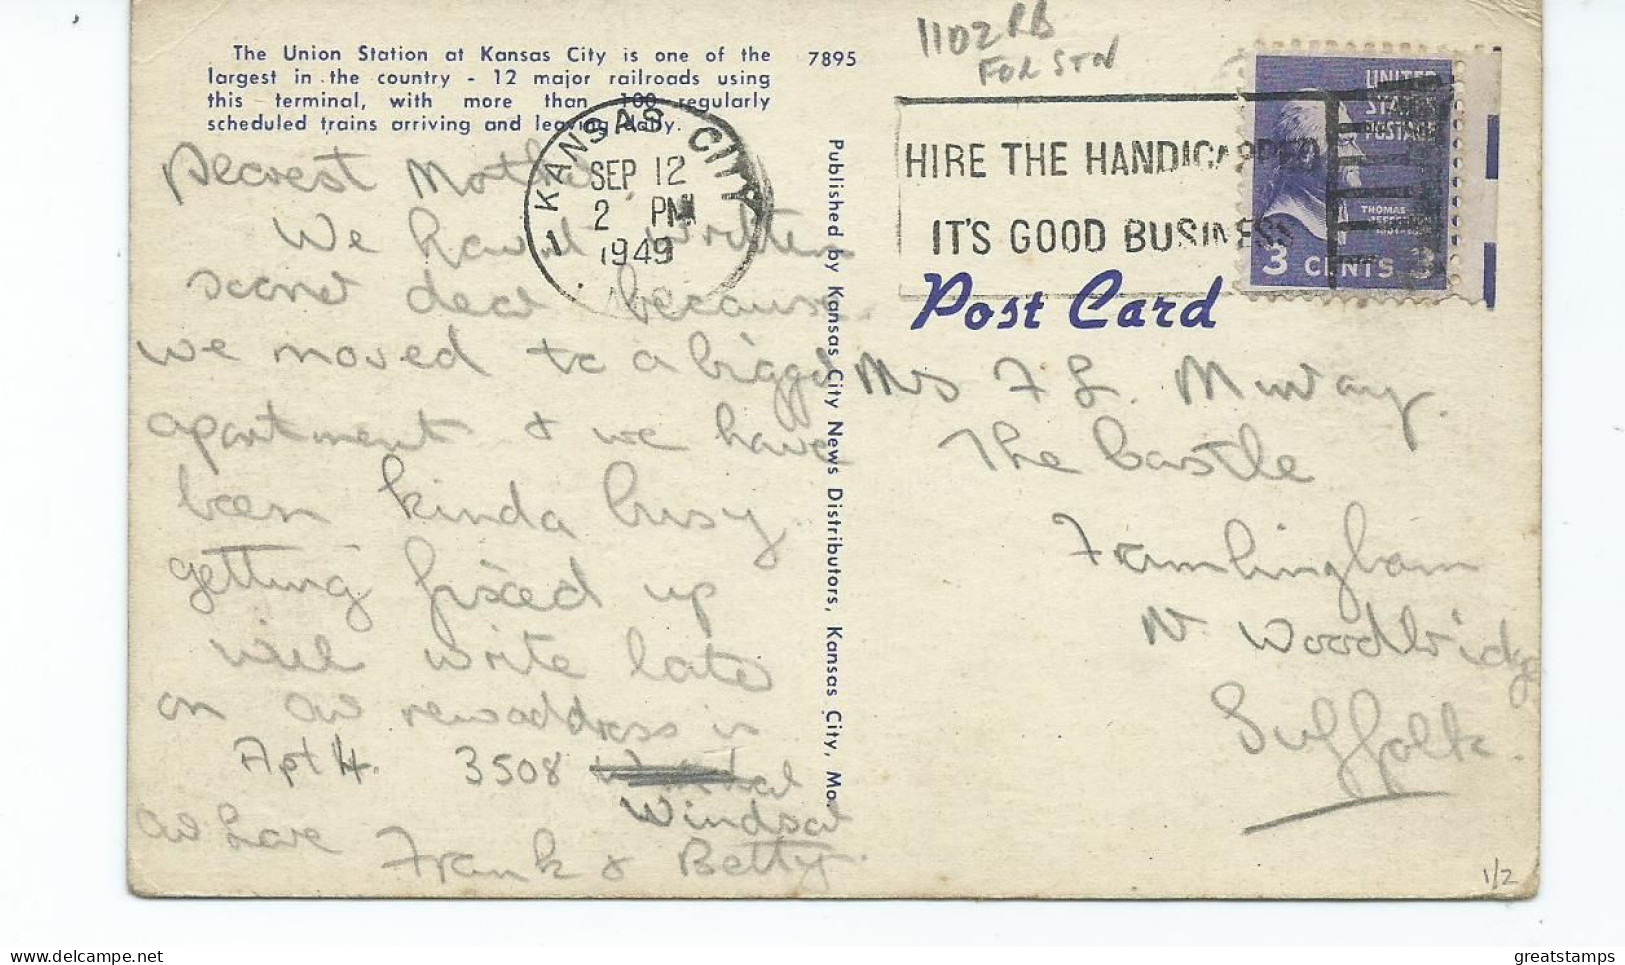 The Union Station at Kansas City is one of the
largest in the country - 12 major railroads using
this terminal, with more than 100 regularly
scheduled trains arriving and leaving daily.
7895
1102 RB
FOR STN
1 KANSAS CITY
SEP 12
2 PM
1949
HIRE THE HANDICAPPED
IT'S GOOD BUSINESS
UNITED
STATES
POSTAGE
THOMAS
JEFFERSON
3 CENTS 3
Post Card
Published by Kansas City News Distributors, Kansas City, Mo.
Dearest Mother
We havent written
sooner dear because
we moved to a bigger
apartment & we have
been kinda busy
getting fixed up
will write later
on our new address is
Apt H. 3508
Windsor
our Love
Frank & Betty.
Mrs F L. Murray.
The Castle
Framlingham
Nr Woodbridge
Suffolk.
1/2
greatstamps